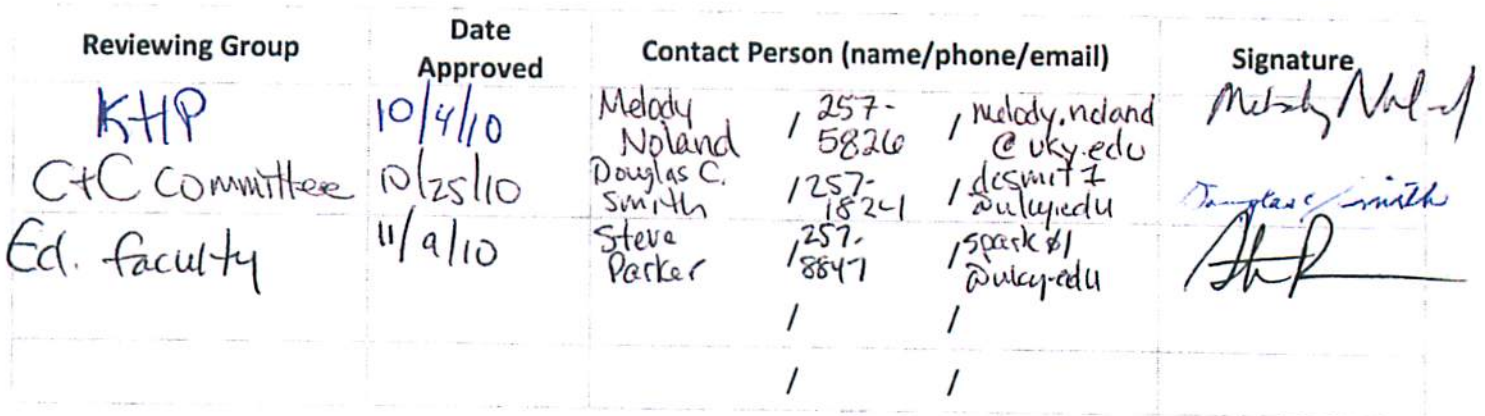 Reviewing Group Date Approved Contact Person (name/phone/email) Signature
KHP 10/4/10 Melody Noland / 257-5826 / melody.noland@uky.edu Melody Noland
C+C Committee 10/25/10 Douglas C. Smith / 257-1824 / dcsmit1@uky.edu Douglas C Smith
Ed. faculty 11/9/10 Steve Parker / 257-8847 / spark01@uky.edu
/ /
/ /